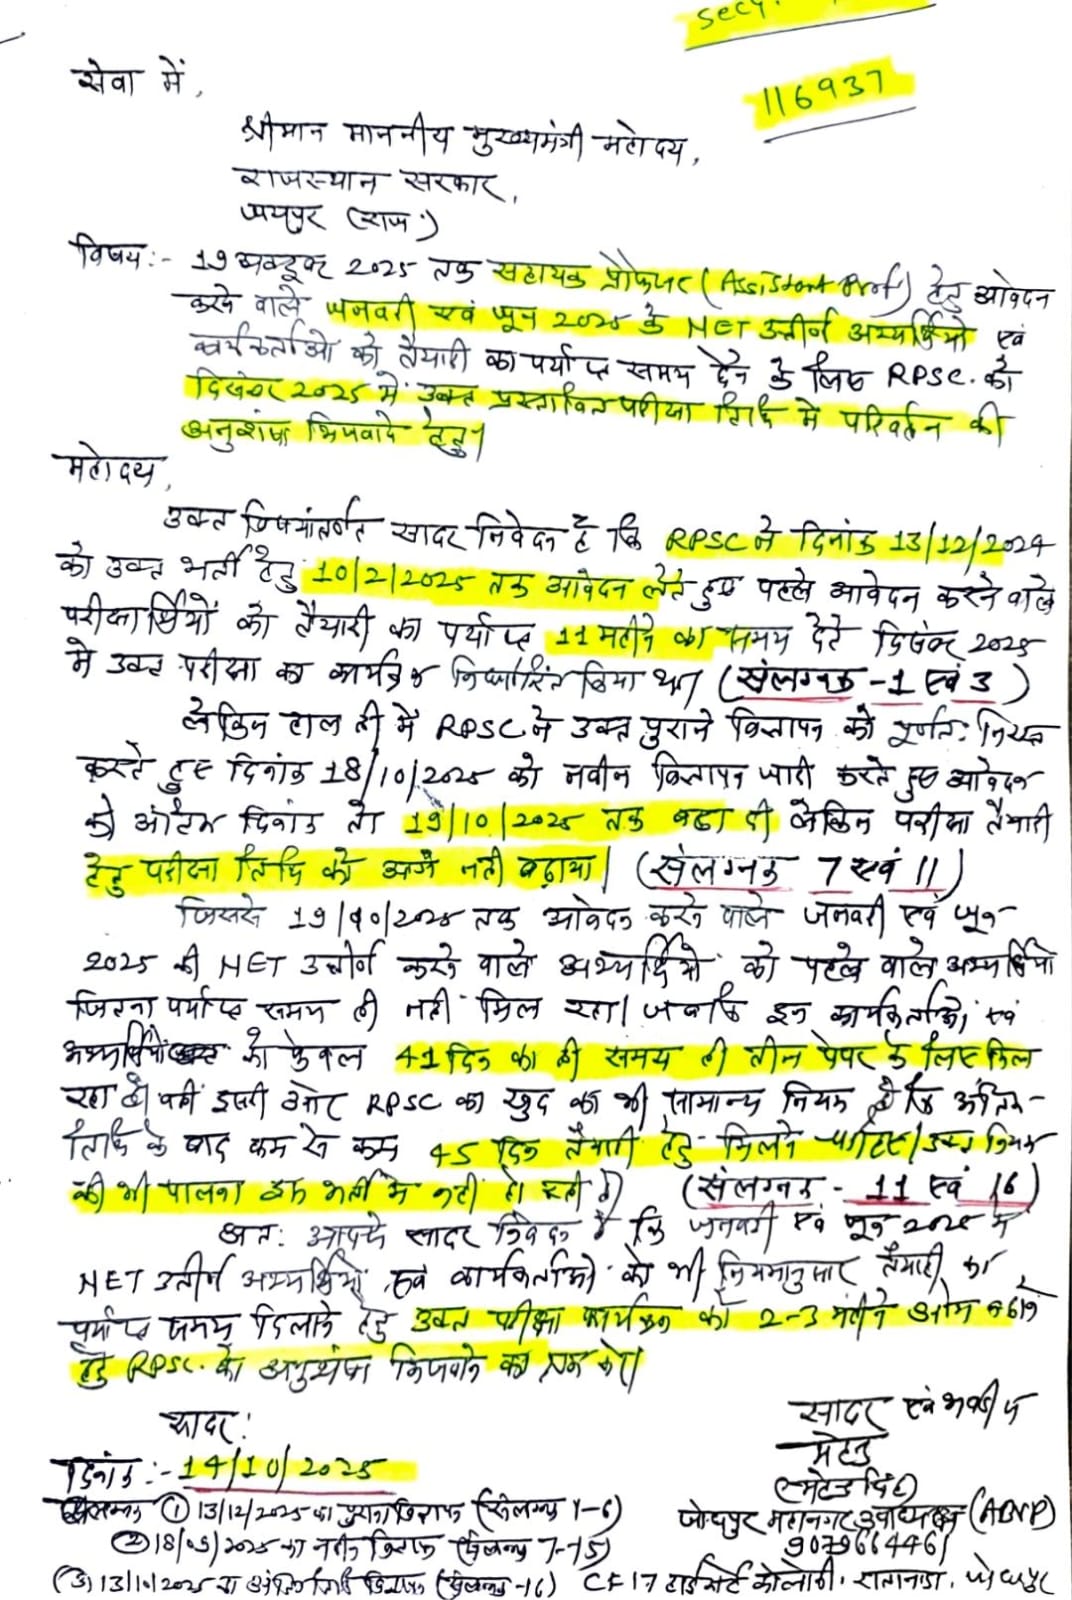 secy.
116937
सेवा में,
श्रीमान माननीय मुख्यमंत्री महोदय,
राजस्थान सरकार,
जयपुर (राज.)
विषय:- 19 अक्टूबर 2025 तक सहायक प्रोफेसर (Assistant Prof) हेतु आवेदन
करने वाले जनवरी एवं जून 2025 के NET उत्तीर्ण अभ्यर्थियो एवं
कार्यकर्ताओ को तैयारी का पर्याप्त समय देने के लिए RPSC. को
दिसंबर 2025 में उक्त प्रस्तावित परीक्षा तिथि में परिवर्तन की
अनुशंषा भिजवाने हेतु।
महोदय,
उक्त विषयांतर्गत सादर निवेदन है कि RPSC ने दिनांक 13/12/2024
को उक्त भर्ती हेतु 10/2/2025 तक आवेदन लेते हुए पहले आवेदन करने वाले
परीक्षार्थियों को तैयारी का पर्याप्त 11 महीने का समय देते दिसंबर 2025
में उक्त परीक्षा का कार्यक्रम निर्धारित किया था। (संलग्नक - 1 एवं 3)
लेकिन हाल ही में RPSC ने उक्त पुराने विज्ञापन को पूर्णत: निरस्त
करते हुए दिनांक 18/10/2025 को नवीन विज्ञापन जारी करते हुए आवेदन
की अंतिम दिनांक तो 19/10/2025 तक बढा दी लेकिन परीक्षा तैयारी
हेतु परीक्षा तिथि को आगे नही बढ़ाया। (संलग्नक 7 एवं 11)
जिससे 19/10/2025 तक आवेदन करने वाले जनवरी एवं जून
2025 की NET उत्तीर्ण करने वाले अभ्यर्थियो को पहले वाले अभ्यर्थियो
जितना पर्याप्त समय ही नही मिल रहा। जबकि इन कार्यकर्ताओ एवं
अभ्यर्थियो को केवल 41 दिन का ही समय ही तीन पेपर के लिए मिल
रहा है। वहीं दूसरी ओर RPSC का खुद का भी सामान्य नियम है कि अंतिम
तिथि के बाद कम से कम 45 दिन तैयारी हेतु मिलने चाहिए। उक्त नियम
की भी पालना इस भर्ती में नही हो रही है। (संलग्नक - 11 एवं 16)
अत: आपसे सादर निवेदन है कि जनवरी एवं जून 2025 में
NET उत्तीर्ण अभ्यर्थियों एवं कार्यकर्ताओ को भी नियमानुसार तैयारी का
पर्याप्त समय दिलाने हेतु उक्त परीक्षा कार्यक्रम को 2-3 महीने आगे बढाने
हेतु RPSC. को अनुशंषा भिजवाने का श्रम करे।
सादर!
सादर एवं भवदीय
दिनांक:- 14/10/2025
जोधपुर महानगर उपाध्यक्ष (ABVP)
संलग्नक ① 13/12/2025 का पुराना विज्ञापन (संलग्नक 1-6)
9079664461
② 18/09/2025 का नवीन विज्ञापन (संलग्नक 7-15)
③ 13/10/2025 का अंतिम तिथि विज्ञापन (संलग्नक -16)
CF 17 हाईकोर्ट कोलोनी. रातानाडा. जोधपुर